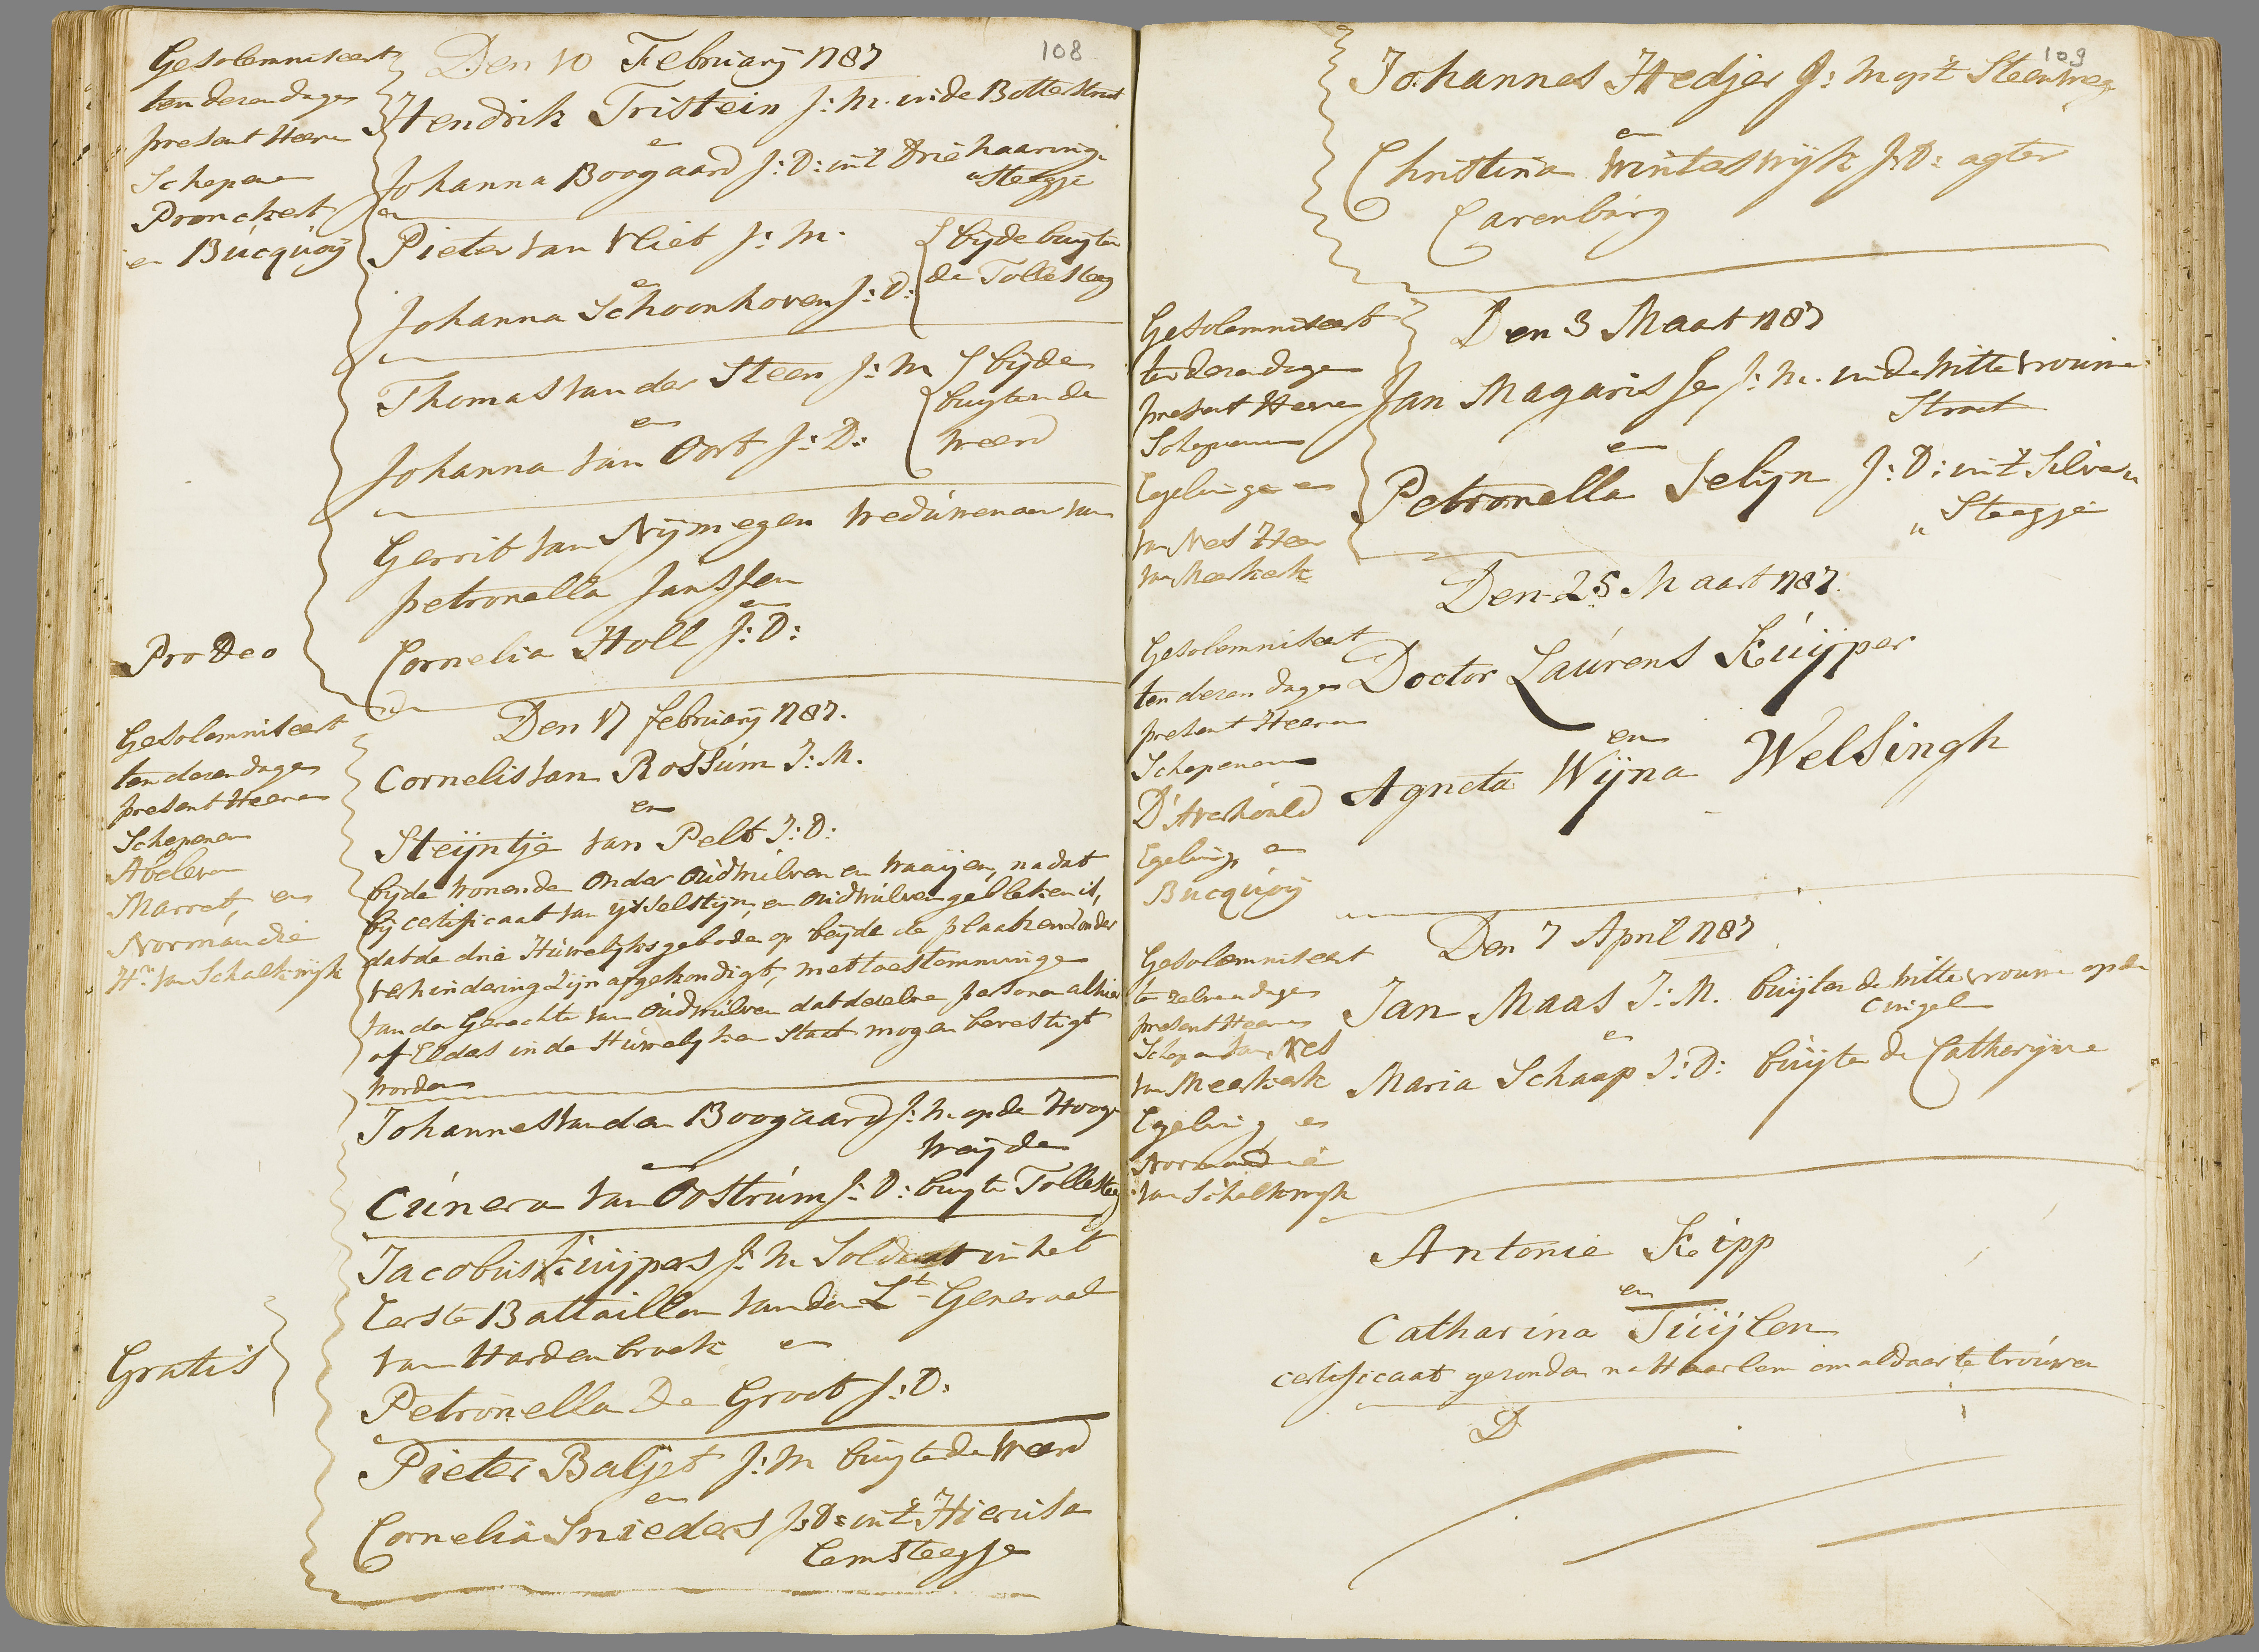 108
Gesolemniseert
ten deren dage
present Heeren
Schepene
Pronckert
en Bucquoij
Den 10 Februarij 1787
Hendrik Tristein J: M. in de Botterstraat
en
Johanna Boogaard J: D: in 't Drie haaring
Steegje
en
Pieter van Vliet J: M.
en
Johanna Schoonhoven J: D:
bijde buyten
de Tollesteeg
Thomas van der Steen J: M
en
Johanna van Oort J: D:
bijde
buyten de
Weerd
Gerrit van Nijmegen Weduwenaar van
petronella Janssen
en
Cornelia Holl J: D:
Pro Deo
Gesolemniseert
ten deren dage
present Heeren
Schepenen
Abeleven
Marret, en
Normandie
Hr. van Schalkwijk
Den 17 februarij 1787.
Cornelis van Rossum J: M.
en
Steijntje van Pelt J: D:
bijde wonende onder Oudwulven en Waaijen, nadat
bij certificaat van ijsselstijn, en oudwulven gebleken is,
dat de drie Huwelijksgebode op beijde de plaatsen zonder
verhindering zijn afgekondigt, met toestemminge
van den Gerechte van Oudwulven dat dezelve persone alhier
of Elders in de Huwelijken Staat mogen bevestigt
worden
Johannes van den Boogaard J: M op de Hooge
Weijde
en
Cunera van Oostrum J: D: buyte Tollesteeg
Jacobus Kuijpers J: M Soldaat in het
Eerste Battaillon van den Lt. Generaal
van Hardenbroek en
Petronella De Groot J: D:
Gratis
Pieter Baljet J: M buyten de Weerd
en
Cornelia Snieders J: D: in 't Hierusa
lemsteegje
109
Johannes Hedjer J: M op 't Steenweg
en
Christina Winteswijk J: D: agter
Carenburg
Gesolemniseert
ten deren dage
present Heeren
Schepenen
Egelinge en
van Nes Heer
van Meerkerk
Den 3 Maart 1787
Jan Magarisse J: M. in de Witte Vrouwe
Straat
en
Petronella Selijn J: D: in 't Silvere
Steegje
Den 25 Maart 1787.
Gesolemniseert
ten deren dage
present Heeren
Schepenen
D'Averhoult
Egeling en
Bucquoij
Doctor Laurens Kuijper
en
Agneta Wijna Welsingh
Den 7 April 1787
Gesolemniseert
ten zelven dage
present Heeren
Schepen van Nes
van Meerkerk
Egeling en
Normandie
van Schalkwijk
Jan Maas J: M. buijten de Witte vrouwe op de
Cingel
en
Maria Schaap J: D: buijte de Catharijne
Antonie Kipp
en
Catharina Tuijlen
certificaat gezonden na Haarlem om aldaar te trouwen
D